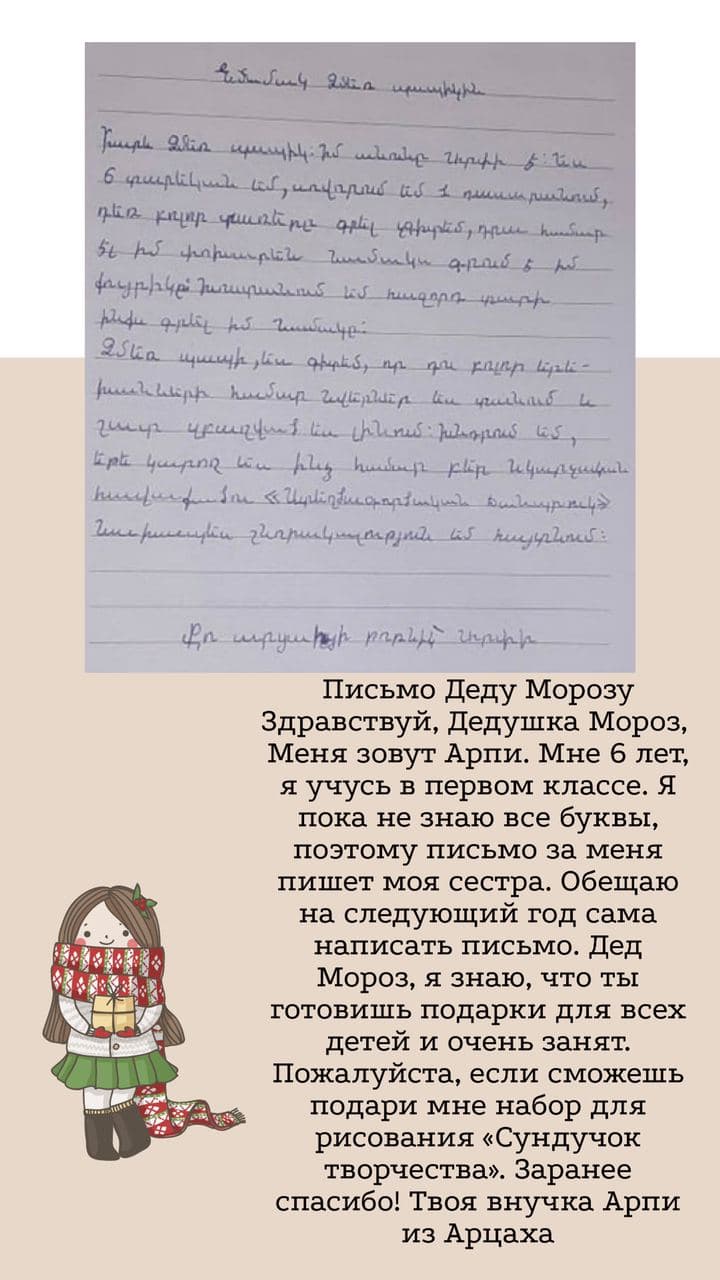 Նամակ Ձմեռ պապիկին
Բարև Ձմեռ պապիկ: Իմ անունը Արփի է: Ես
6 տարեկան եմ, սովորում եմ 1 դասարանում,
դեռ բոլոր տառերը գրել չգիտեմ, դրա համար
էլ իմ փոխարեն նամակս գրում է իմ
քույրիկը: Խոստանում եմ հաջորդ տարի
ինքս գրել իմ նամակը:
Ձմեռ պապի, ես գիտեմ, որ դու բոլոր երե-
խաների համար նվերներ ես տանում և
շատ զբաղված ես լինում: Խնդրում եմ,
եթե կարող ես ինձ համար բեր նկարչական
հավաքածու «Ստեղծագործական ճամպրուկ»
Նախապես շնորհակալություն եմ հայտնում:
Քո արցախցի թոռնիկ՝ Արփի
Письмо Деду Морозу
Здравствуй, Дедушка Мороз,
Меня зовут Арпи. Мне 6 лет,
я учусь в первом классе. Я
пока не знаю все буквы,
поэтому письмо за меня
пишет моя сестра. Обещаю
на следующий год сама
написать письмо. Дед
Мороз, я знаю, что ты
готовишь подарки для всех
детей и очень занят.
Пожалуйста, если сможешь
подари мне набор для
рисования «Сундучок
творчества». Заранее
спасибо! Твоя внучка Арпи
из Арцаха